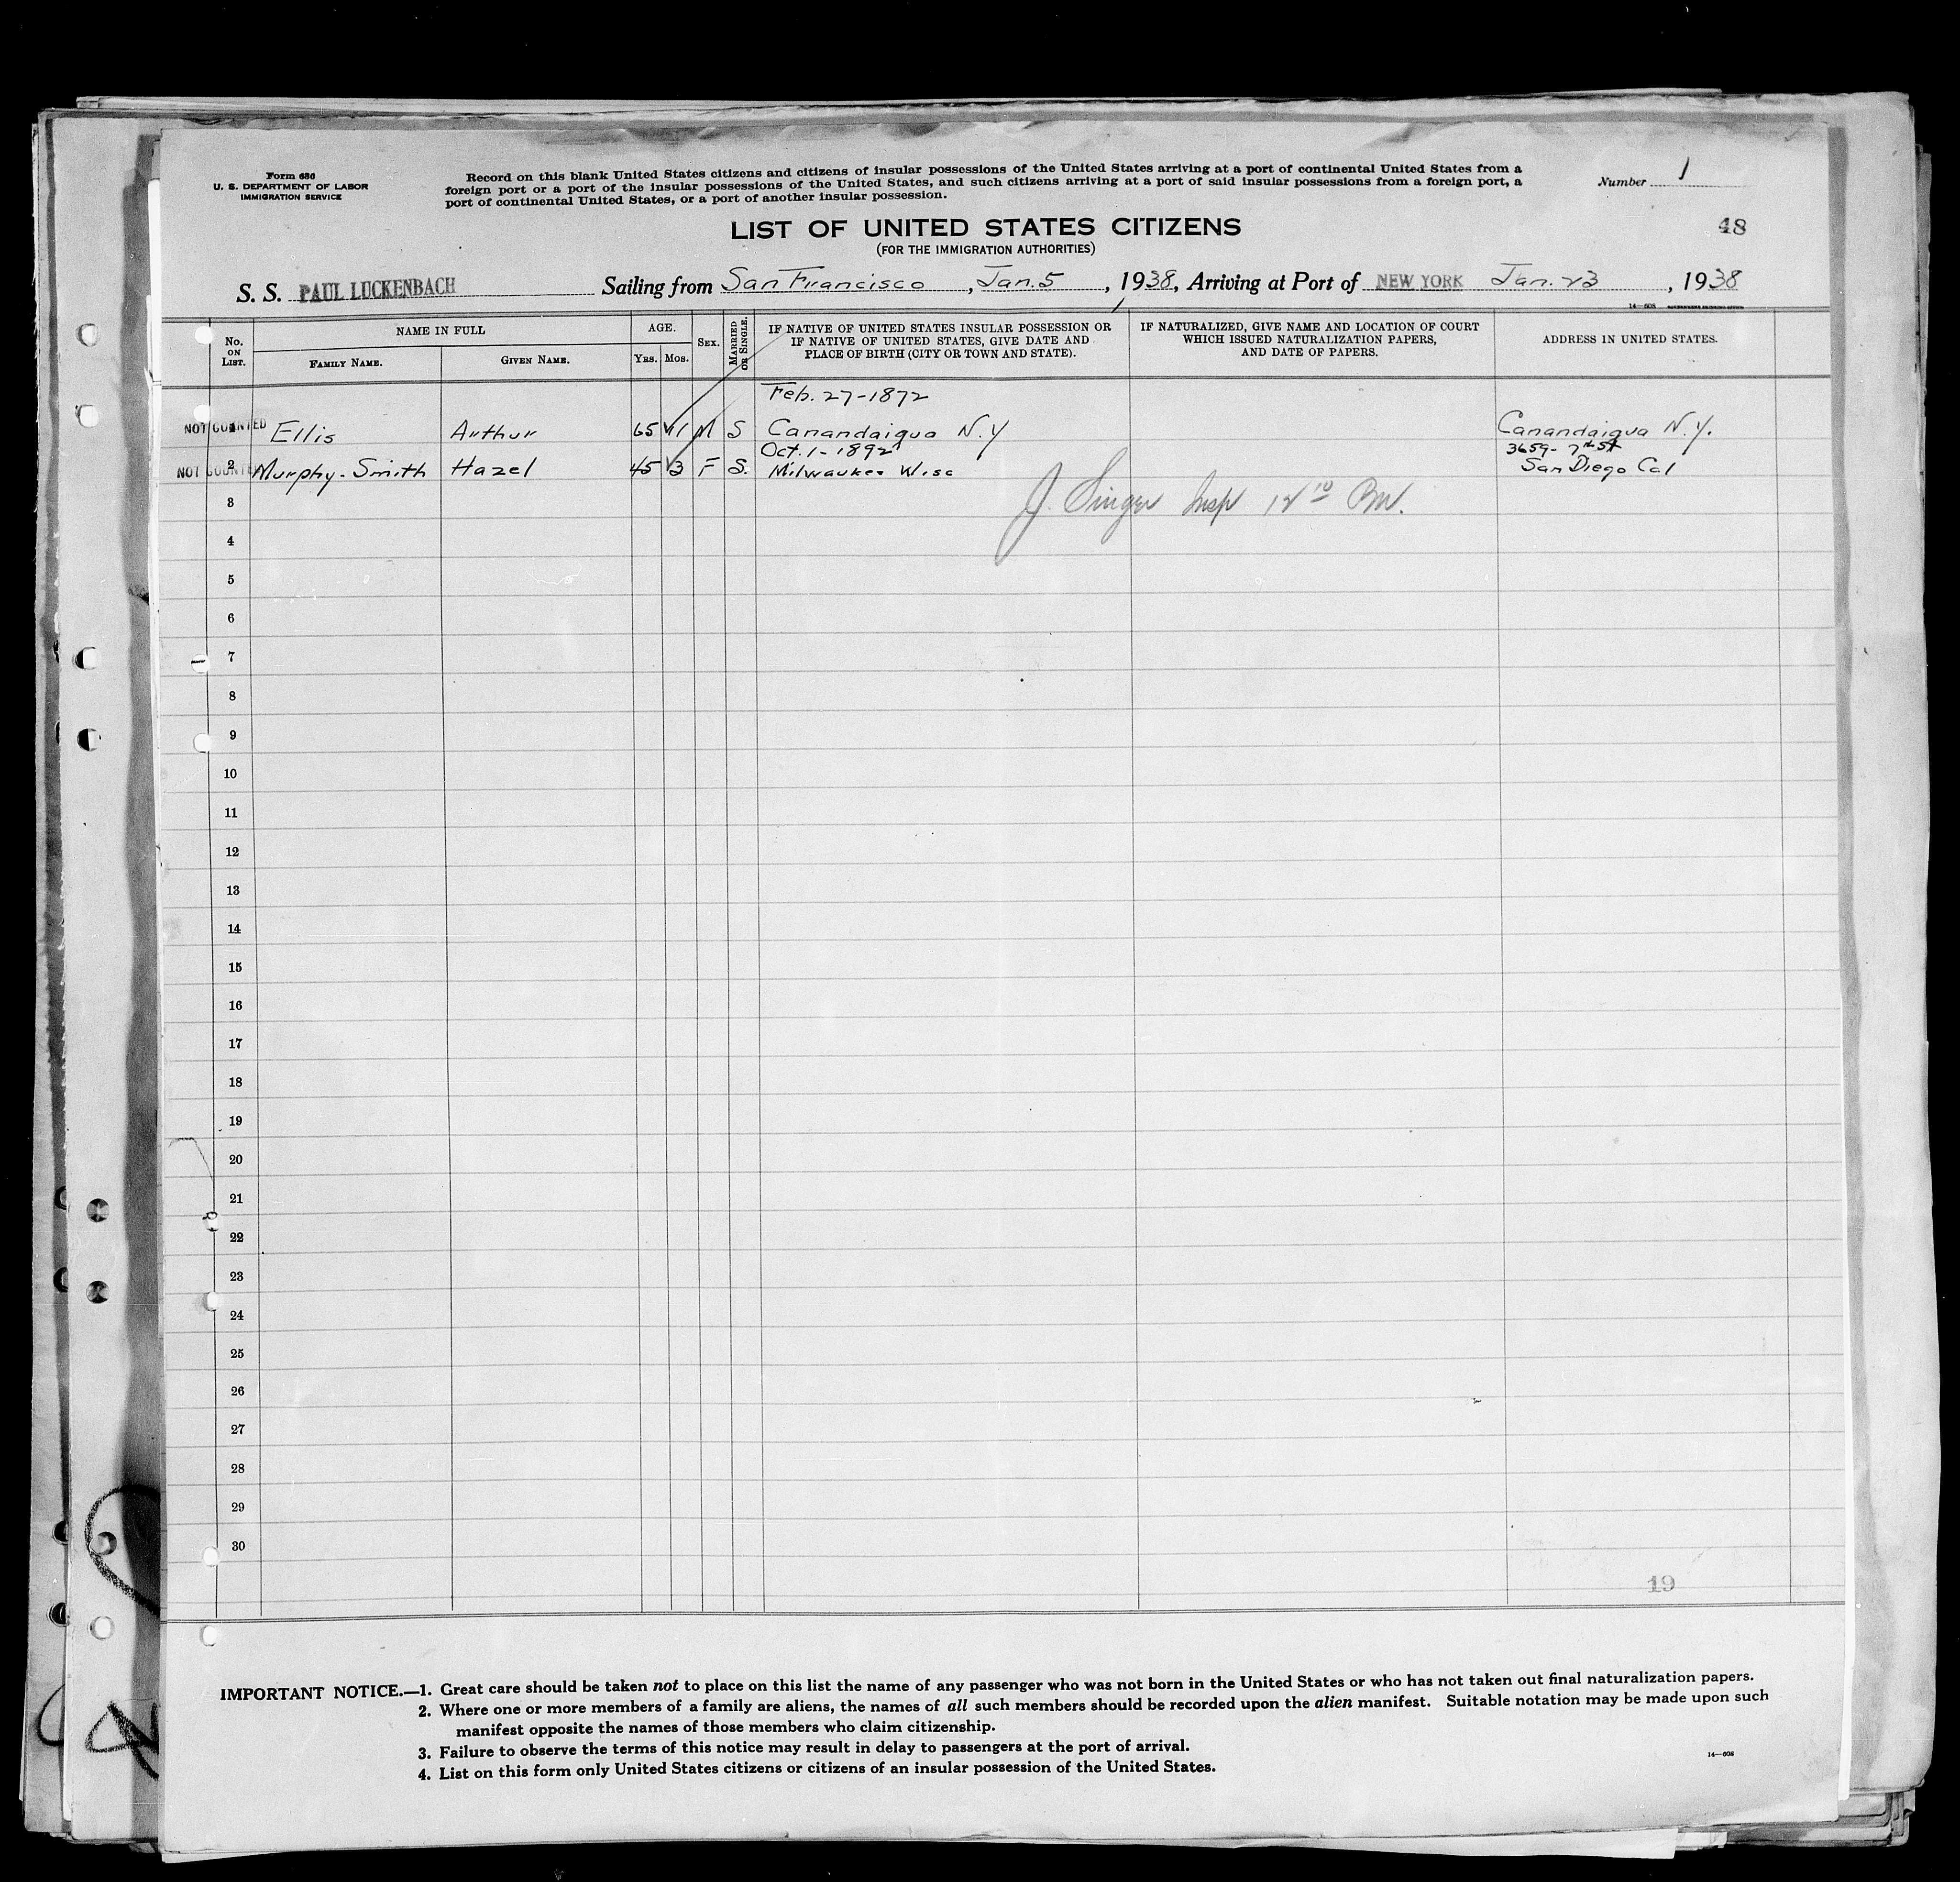 Form 686
U. S. DEPARTMENT OF LABOR
IMMIGRATION SERVICE
Record on this blank United States citizens and citizens of insular possessions of the United States arriving at a port of continental United States from a
foreign port or a port of the insular possessions of the United States, and such citizens arriving at a port of said insular possessions from a foreign port, a
port of continental United States, or a port of another insular possession.
Number 1
48
LIST OF UNITED STATES CITIZENS
(FOR THE IMMIGRATION AUTHORITIES)
S. S. PAUL LUCKENBACH Sailing from San Francisco, Jan. 5, 1938, Arriving at Port of NEW YORK Jan. 23, 1938
14—608
No. ON LIST.
NAME IN FULL
FAMILY NAME.
GIVEN NAME.
AGE.
YRS.
MOS.
SEX.
MARRIED OR SINGLE.
IF NATIVE OF UNITED STATES INSULAR POSSESSION OR
IF NATIVE OF UNITED STATES, GIVE DATE AND
PLACE OF BIRTH (CITY OR TOWN AND STATE).
IF NATURALIZED, GIVE NAME AND LOCATION OF COURT
WHICH ISSUED NATURALIZATION PAPERS,
AND DATE OF PAPERS.
ADDRESS IN UNITED STATES.
Feb. 27-1872
NOT COUNTED 1 Ellis Arthur 65 11 M S Canandaigua N.Y Canandaigua N.Y.
Oct. 1-1892 3659- 7th St
NOT COUNTED 2 Murphy-Smith Hazel 45 3 F S. Milwaukee Wisc San Diego Cal
3 J. Singer Insp
4
5
6
7
8
9
10
11
12
13
14
15
16
17
18
19
20
21
22
23
24
25
26
27
28
29
30
19
IMPORTANT NOTICE.—1. Great care should be taken not to place on this list the name of any passenger who was not born in the United States or who has not taken out final naturalization papers.
2. Where one or more members of a family are aliens, the names of all such members should be recorded upon the alien manifest. Suitable notation may be made upon such
manifest opposite the names of those members who claim citizenship.
3. Failure to observe the terms of this notice may result in delay to passengers at the port of arrival.
4. List on this form only United States citizens or citizens of an insular possession of the United States.
14—608